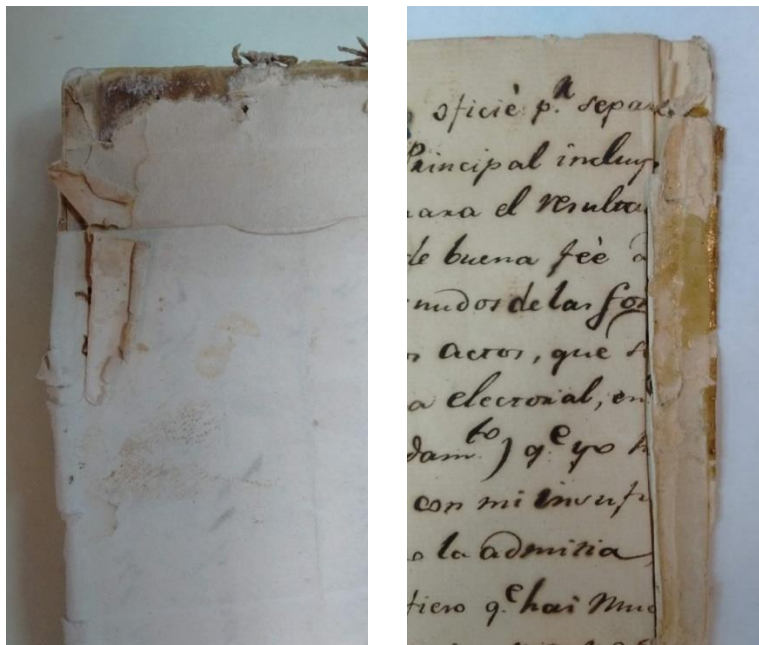 oficiè p.ª separ
Principal incluy
para el resulta
de buena feè a
nudos de las for
s actos, que s
a electoral, en
dam.to) q.e yo h
con mi insufi
o la admitia
fiero q.e hai Muc